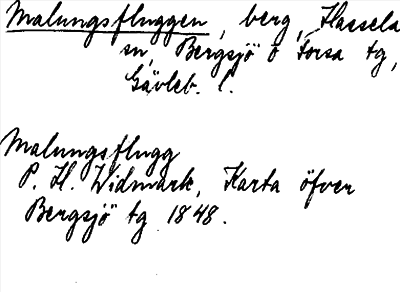 Malungsfluggen, berg, Hassela
sn, Bergsjö o Forsa tg,
Gävleb. l.
Malungsflugg
P. H. Widmark, Karta öfver
Bergsjö tg 1848.